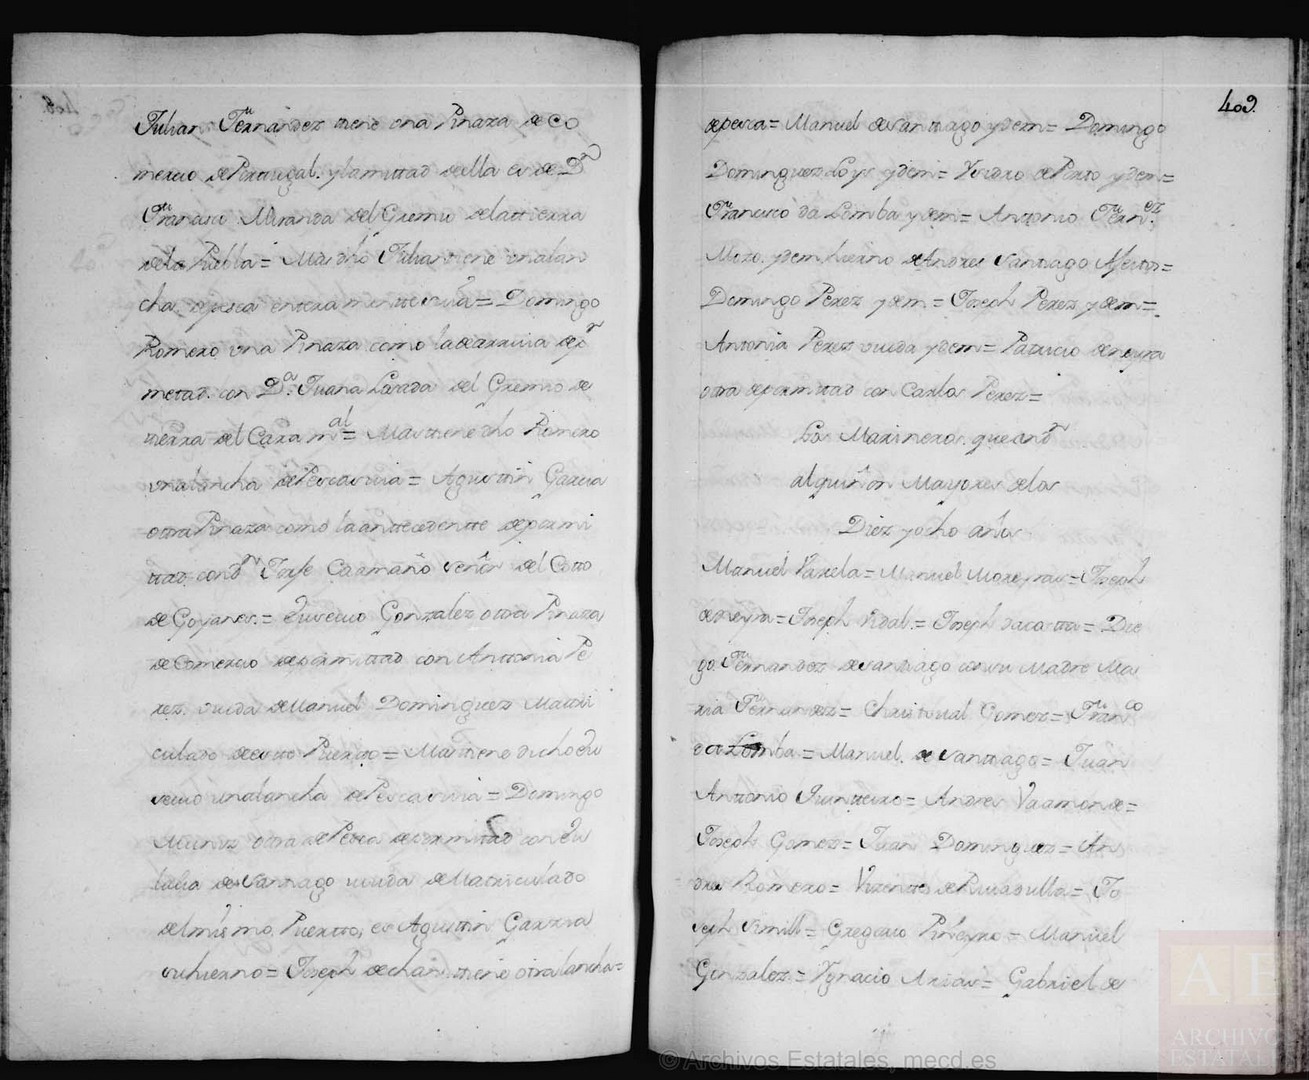 Julian Fernandez tiene una Pinaza de Co
mercio de Portugal. y la mittad de ella es de Dn
Francisco Miranda del Gremio de la tierra
de la Puebla = Mas dho Julian tiene una lan
cha de pesca enteramentte suia = Domingo
Romero una Pinaza como la de arriva de p
metad. con Da. Juana Losada del Gremio de
tierra del Caramal = Mas tiene dho Romero
una lancha de Pesca suia = Agusttin Garcia
ottra Pinaza como la anttecedentte de por mi
ttad con Dn Josfe Caamaño señor del Cotto
de Goyanes. = Eusevio Gonzalez ottra Pinaza
de Comercio de por mittad con Anttonia Pe
rez. viuda de Manuel Dominguez Mattri
culado de estte Puertto = Mas tiene dicho Eu
sevio una lancha de Pesca suia = Domingo
Muniz ottra de Pesca de por mittad con Eu
lalia de Santiago viuda de Matriculado
del mismo Puertto, es Agusttin Garzia
su hierno = Joseph de chan tiene otra lancha =
409.
de pesca = Manuel de Santtiago ydem = Domingo
Dominguez Loys ydem = Ysidro de Porto ydem =
Francisco da Lomba ydem = Antonio Fernez.
Mozo. ydem hierno de Andres Santiago
Domingo Perez ydem = Joseph Perez ydem =
Antonia Perez viuda ydem = Patricio de neyra
otra de por mitad con Carlos Perez =
Los Marineros. que
Mayores de los
Diez y ocho años
Manuel Varela = Manuel Moreyras = Joseph
de neyra = Joseph Vidal. = Joseph da costta = Die
go. Fernandez de Santiago con su Madre Ma
ria Fernandez = Christoval Gomez = Franco
da Lomba = Manuel. de Santtiago = Juan
Antonio Quinteiro = Andres Vaamonde =
Joseph Gomez = Juan Dominguez = An
dres Romero = Vizente de Rivadulla = Jo
seph Simill = Gregorio Piñeyro = Manuel
Gonzalez = Ygnacio Arias = Gabriel de
© Archivos Estatales, mecd.es
AE
ARCHIVOS
ESTATALES